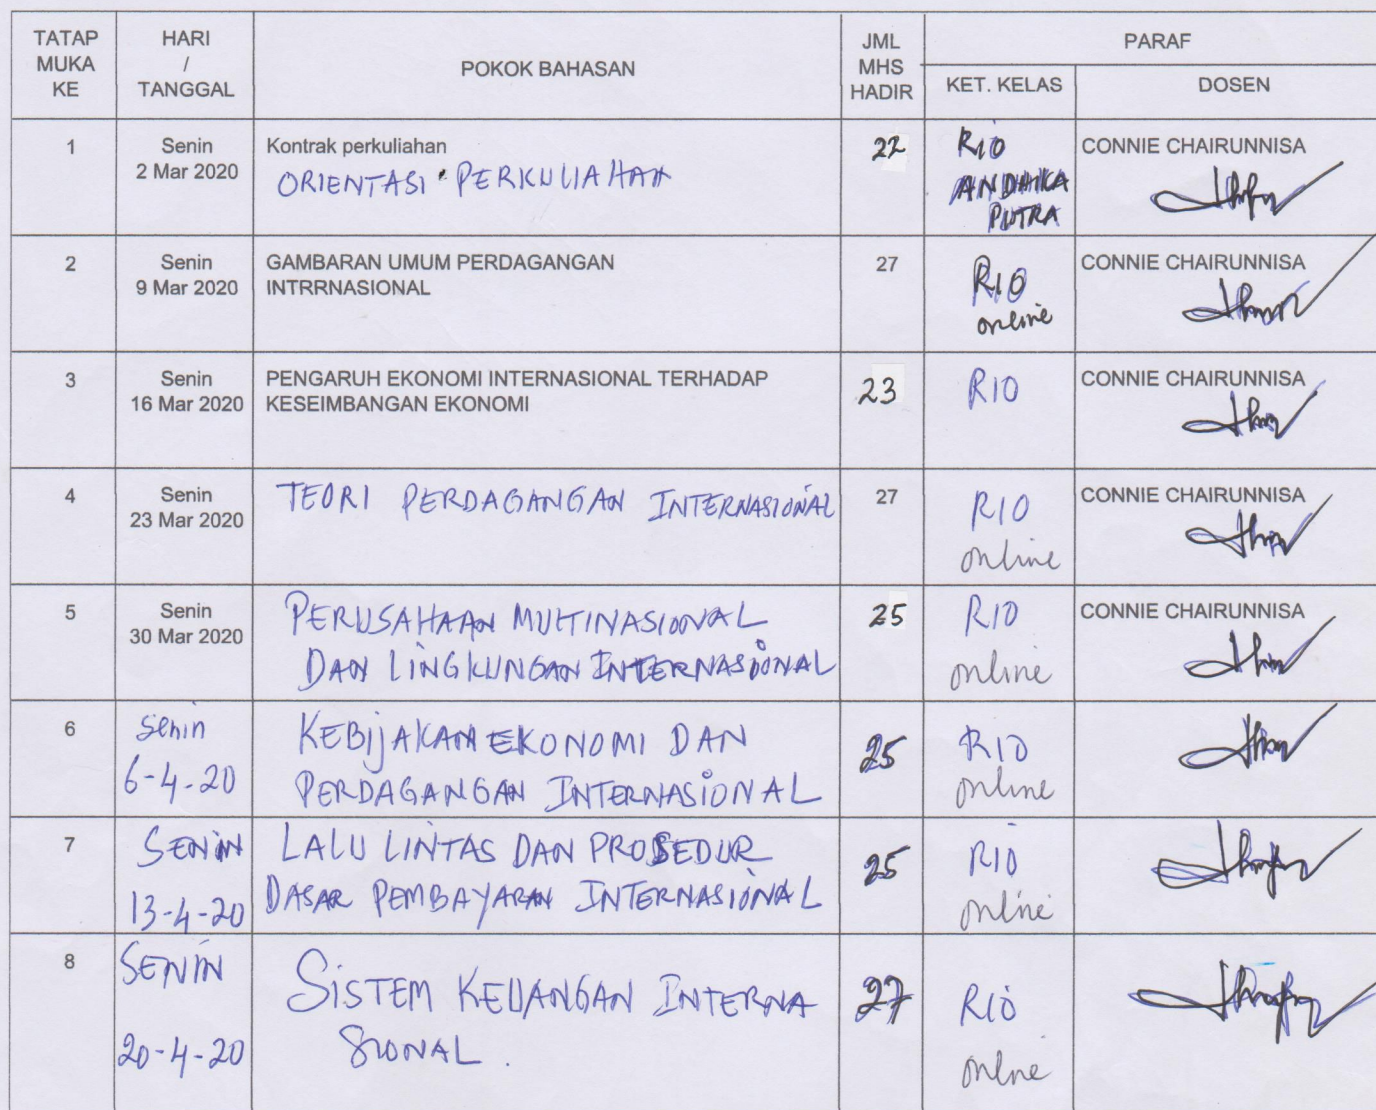 TATAP MUKA KE
HARI / TANGGAL
POKOK BAHASAN
JML MHS HADIR
PARAF
KET. KELAS
DOSEN
1
Senin
2 Mar 2020
Kontrak perkuliahan
ORIENTASI PERKULIAHAN
22
RIO
ANDHIKA
PUTRA
CONNIE CHAIRUNNISA
2
Senin
9 Mar 2020
GAMBARAN UMUM PERDAGANGAN
INTRRNASIONAL
27
RIO
online
CONNIE CHAIRUNNISA
3
Senin
16 Mar 2020
PENGARUH EKONOMI INTERNASIONAL TERHADAP
KESEIMBANGAN EKONOMI
23
RIO
CONNIE CHAIRUNNISA
4
Senin
23 Mar 2020
TEORI PERDAGANGAN INTERNASIONAL
27
RIO
online
CONNIE CHAIRUNNISA
5
Senin
30 Mar 2020
PERUSAHAAN MULTINASIONAL
DAN LINGKUNGAN INTERNASIONAL
25
RIO
online
CONNIE CHAIRUNNISA
6
Senin
6-4-20
KEBIJAKAN EKONOMI DAN
PERDAGANGAN INTERNASIONAL
25
RIO
online
7
SENIN
13-4-20
LALU LINTAS DAN PROSEDUR
DASAR PEMBAYARAN INTERNASIONAL
25
RIO
online
8
SENIN
20-4-20
SISTEM KEUANGAN INTERNA
SIONAL.
27
RIO
online